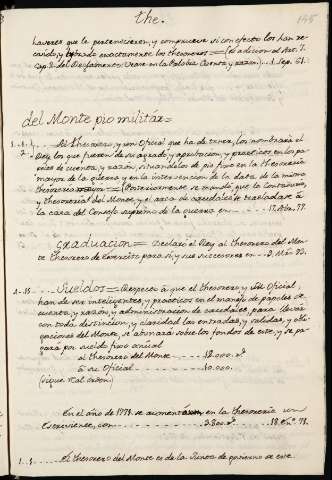 the.
haveres que le pertenecieren, y compruebe si con efecto los han re-
cibido, y estado exactamente los thesoreros = (Adicion al Art.º 7.
Cap. 8. del Reglamento. Vease en la Palabra Cuenta y razon)... 1. Sep. 61.
del Monte pio militár =
1..1. El thesorero, y un Oficial que ha de tener, los nombraría el
2. Rey los que fueren de su agrado, y aprobacion, y practicos en los pa-
peles de cuenta, y razon, situandoles de pie fixo en la thesoreria
mayor de la guerra, y en la intervencion de la data de la misma
thesoreria = (Posteriormente se mandó, que la Contaduria,
y thesoreria del Monte, y el arca de caudales se trasladase á
la casa del Consejo supremo de la guerra en 17. Abr. 77.
Graduacion = Declaró el Rey al thesorero del Mon-
te thesorero de Exercito para si, y sus succesores en 3. Mzo. 83.
1..18 Sueldos = Respecto á que el thesorero y su Oficial,
han de ser inteligentes, y practicos en el manejo de papeles de
cuenta, y razon, y administracion de caudales, para llevar
con toda distincion, y claridad las entradas, y salidas, y obli-
gaciones del Monte, se abonará sobre los fondos de este, y se pa-
gara por sueldo fixo anüal
al thesorero del Monte 18.000. r.s
à su Oficial 10.000.
(sigue R.al orden.)
En el año de 1771. se aumentó, en la thesoreria un
escriviente, con 3.300 r.s 18. En.º 71.
1..1 El thesorero del Monte es de la Junta de govierno de este